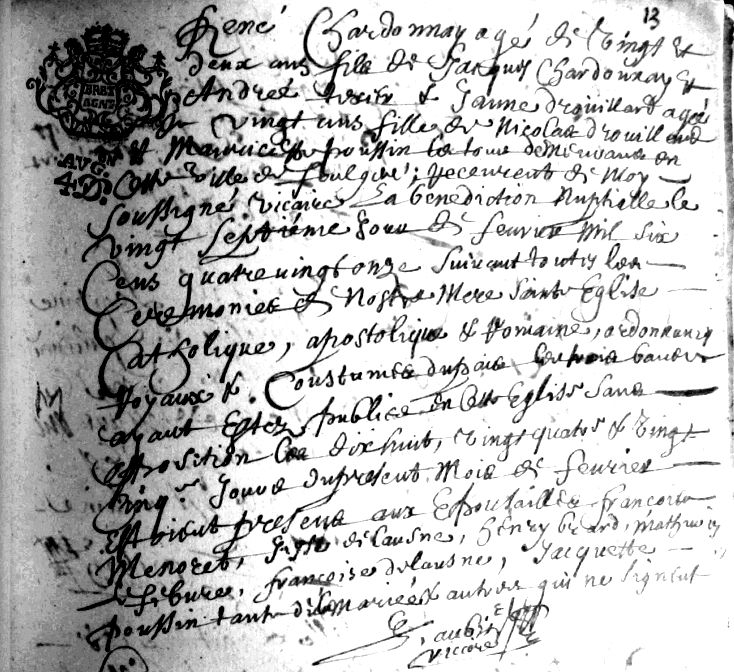 13
René Chardonnay agé de Vingt et
deux ans fils de Jacques Chardonnay et
Andrée texier & Janne drouillard agée
de vingt ans fille de Nicolas drouillard
et Mauricette poussin les tous demeurans en
Cette ville de receurent de Moy
Soussigné vicaire La benediction Nuptialle le
vingt septiéme Jour de feuvrier Mil Six
Cens quatre vingt onze Suivant toutes les
Ceremonies de Nostre Mere Sainte Eglise
Catholique, apostolique & Romaine, ordonnances
Royaux & Coustumes du pais les trois bans
ayant Esté publiés en Cette Eglise Sans
opposition les dixhuit, vingt quatre & vingt
Cinq Jours du present Mois de feuvrier
Estoient presens aux Epousailles francois
Menoret, delausne, henry berard, mathurin
lefebure, francoise delausne, Jacquette
poussin tante de la Mariée & autres qui ne Signent
aubin
viccaire
BRET
AGNE
AVG.
4D.